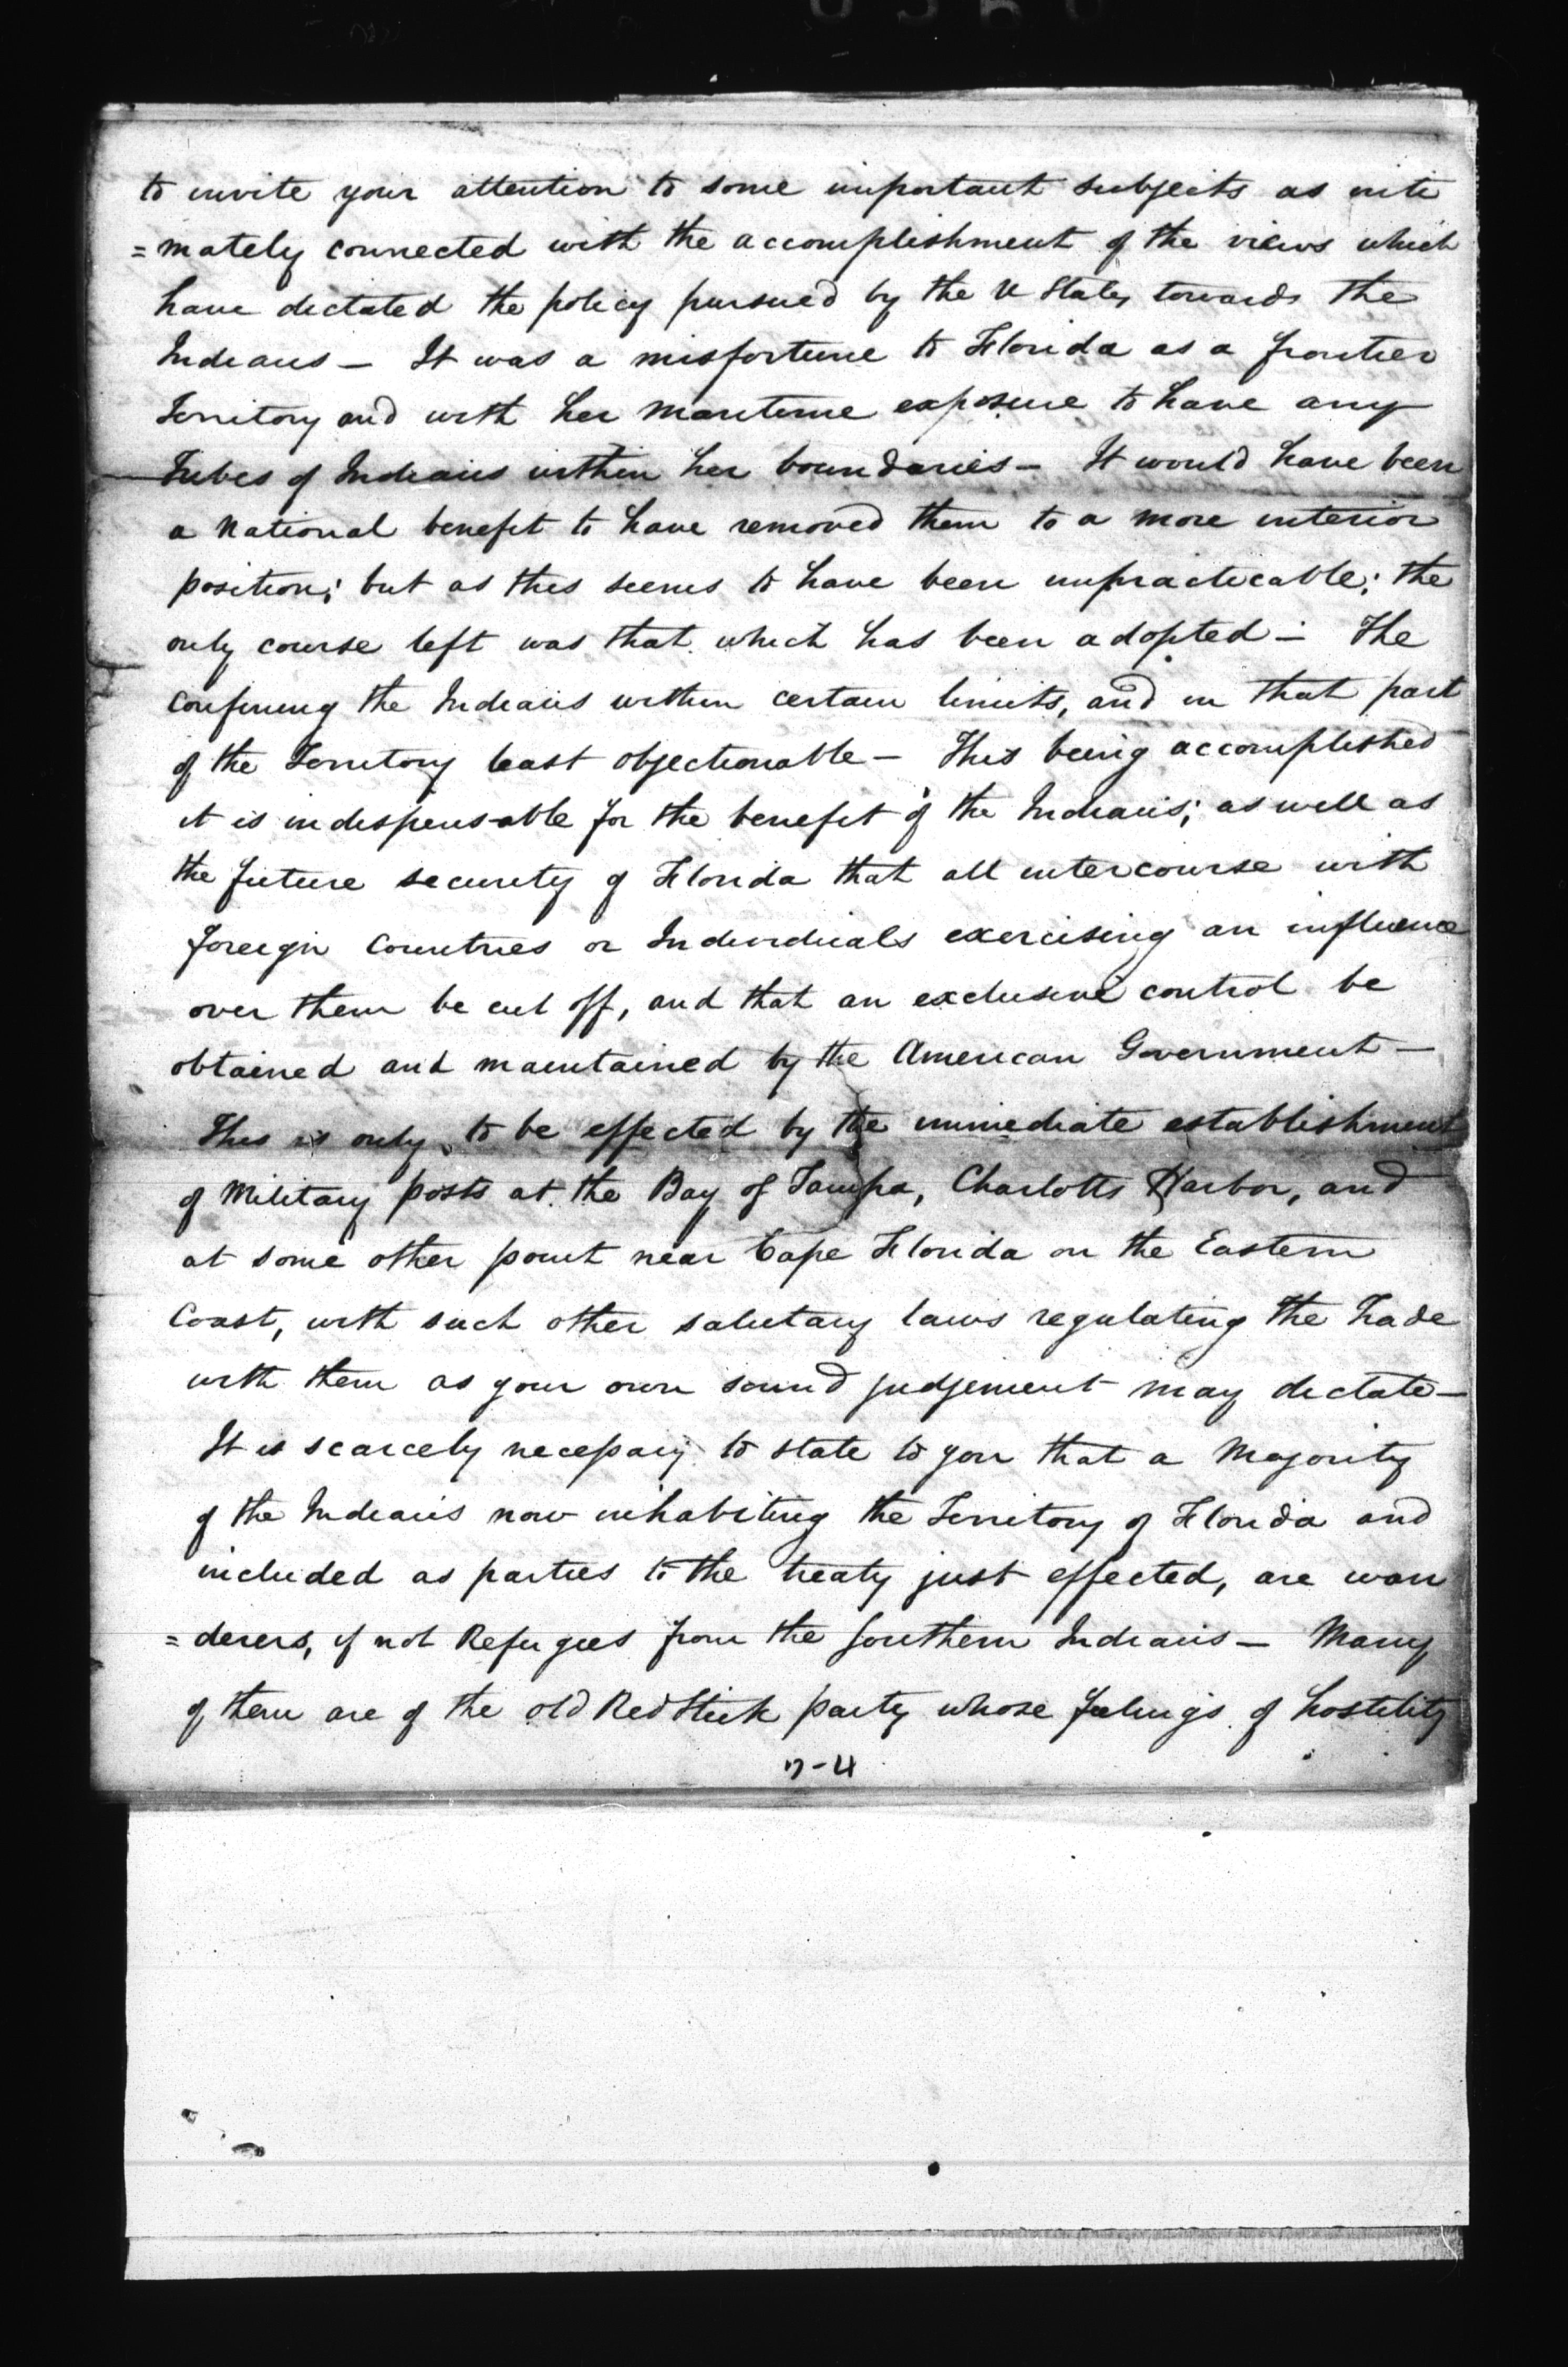 to invite your attention to some important subjects as inti
=mately connected with the accomplishment of the views which
have dictated the policy pursued by the U States towards the
Indians — It was a misfortune to Florida as a frontier
Territory and with her maritime exposure to have any
Tribes of Indians within her boundaries — It would have been
a National benefit to have removed them to a more interior
position; but as this seems to have been impracticable; the
only course left was that which has been adopted — The
confining the Indians within certain limits, and in that part
of the Territory least objectionable — This being accomplished
it is indispensable for the benefit of the Indians; as well as
the future security of Florida that all intercourse with
foreign Countries or Individuals exercising an influence
over them be cut off, and that an exclusive control be
obtained and maintained by the American Government —
This is only to be effected by the immediate establishment
of Military posts at the Bay of Tampa, Charlotts Harbor, and
at some other point near Cape Florida on the Eastern
Coast, with such other salutary laws regulating the Trade
with them as your own sound judgement may dictate —
It is scarcely necessary to state to you that a Majority
of the Indians now inhabiting the Territory of Florida and
included as parties to the treaty just effected, are wan
=derers, if not Refugees from the Southern Indians — Many
of them are of the old Red Stick party whose feelings of hostility
7-4